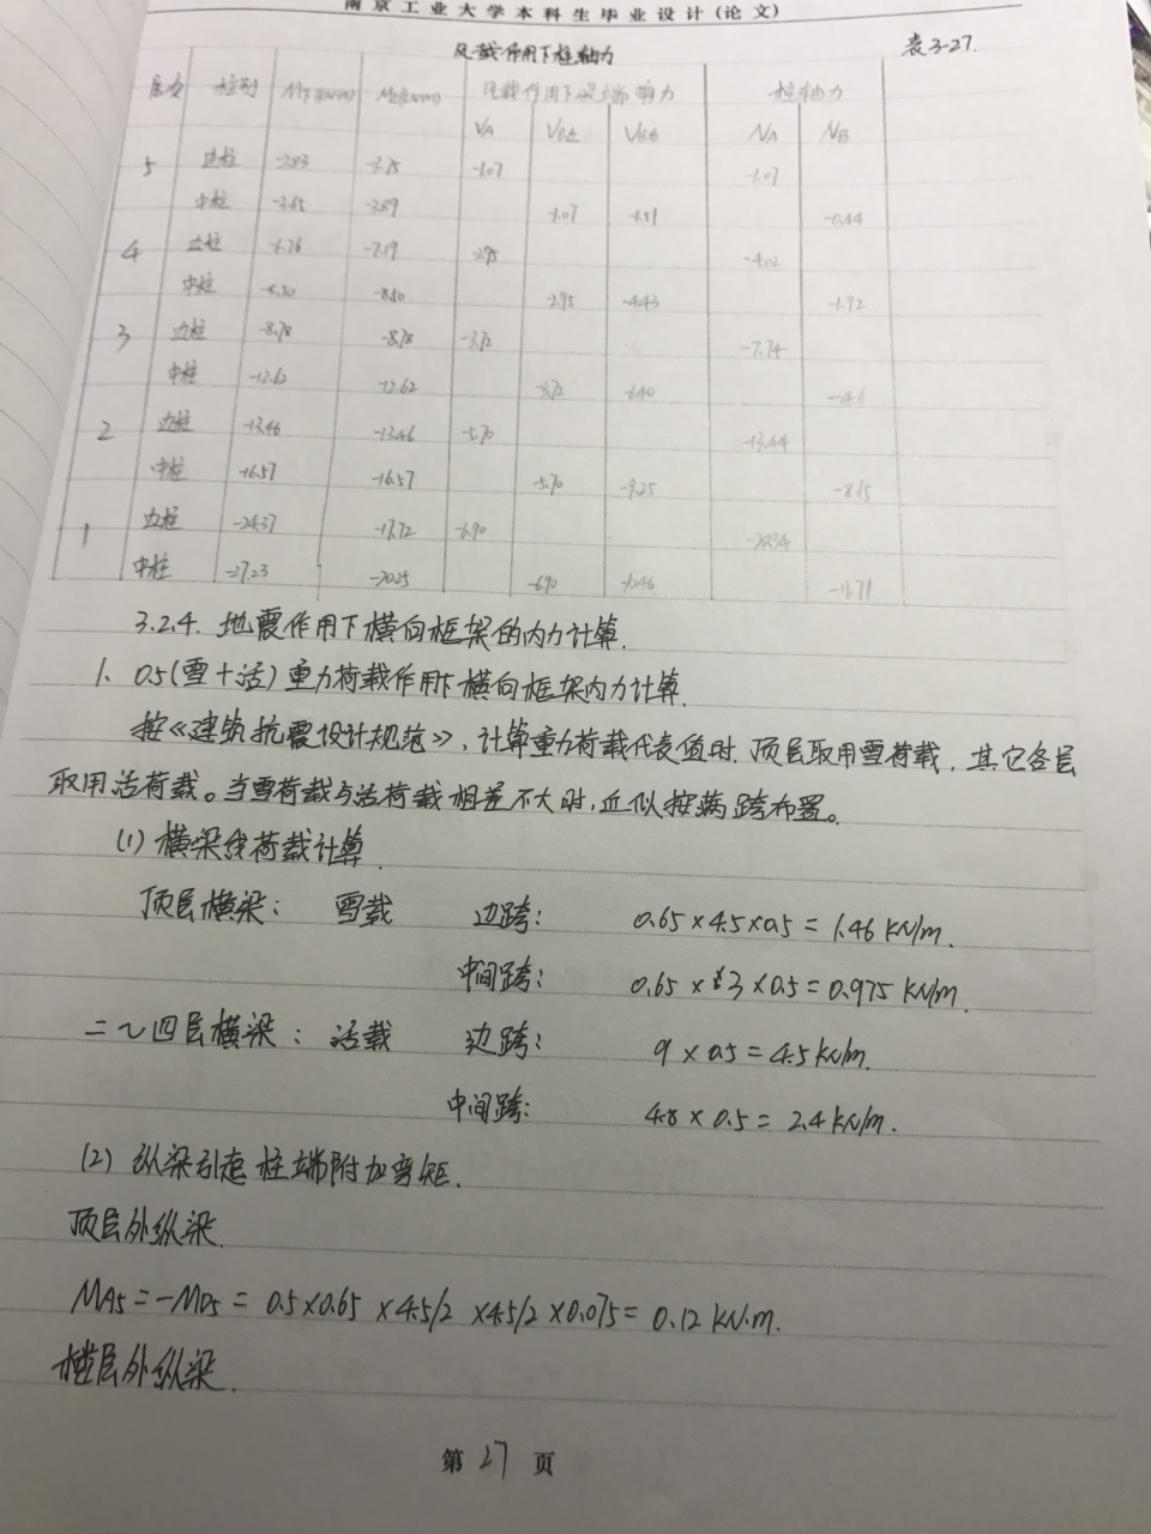 南京工业大学本科生毕业设计(论文)
风载作用下柱轴力 表3-27.
层次 柱别 风载作用下梁端剪力 柱轴力
VA NA NB
5 边柱 -2.83 -3.75 -1.07 -1.07
中柱 -3.65 -3.89 -1.07 -1.51 -0.44
4 边柱 -6.76 -7.19 -2.95 -4.02
中柱 -8.80 -2.95 -4.43 -1.92
3 边柱 -8.78 -8.78 -3.72 -7.74
中柱 -12.62 -12.62 -3.72 -6.40
2 边柱 -13.46 -13.46 -5.70 -13.44
中柱 -16.57 -16.57 -5.70 -9.25
1 边柱 -24.37 -17.72 -6.90
中柱 -27.23 -20.25 -6.90 -11.71
3.2.4. 地震作用下横向框架的内力计算.
1. 0.5(雪+活)重力荷载作用下横向框架内力计算.
按《建筑抗震设计规范》,计算重力荷载代表值时.顶层取用雪荷载,其它各层
取用活荷载。当雪荷载与活荷载相差不大时,近似按满跨布置。
(1) 横梁线荷载计算.
顶层横梁: 雪载 边跨: 0.65×4.5×0.5=1.46 kN/m.
中间跨: 0.65×3×0.5=0.975 kN/m.
二~四层横梁: 活载 边跨: 9×0.5=4.5 kN/m.
中间跨: 4.8×0.5=2.4 kN/m.
(2) 纵梁引起柱端附加弯矩.
顶层外纵梁.
MA5=-MD5=0.5×0.65×4.5/2×4.5/2×0.075=0.12 kN·m.
楼层外纵梁.
第 27 页